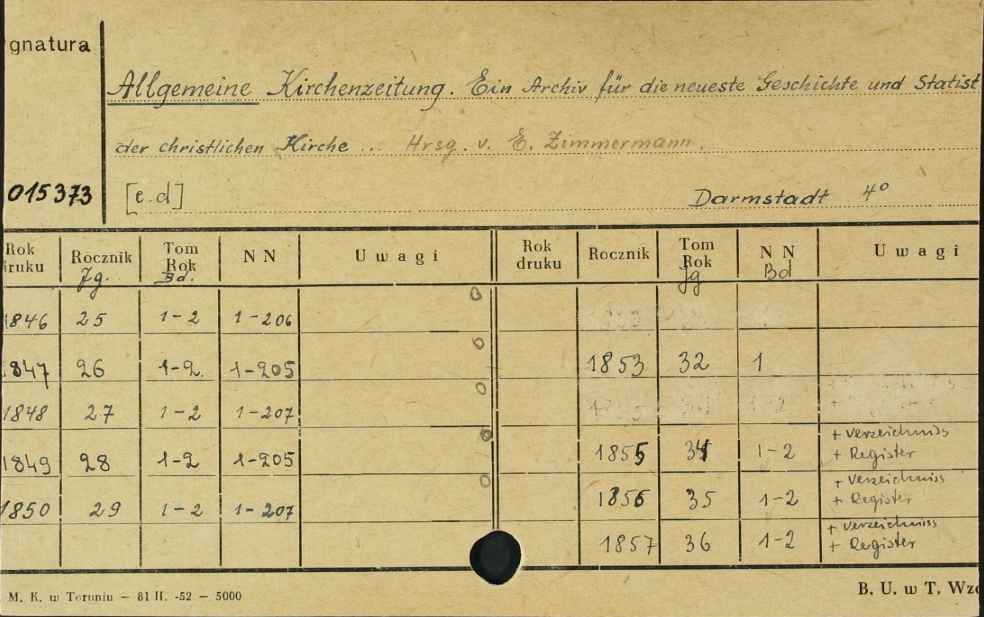 gnatura
Allgemeine Kirchenzeitung. Ein Archiv für die neueste Geschichte und Statist
der christlichen Kirche ... Hrsg. v. E. Zimmermann.
015373 [e.d] Darmstadt 4°
Rok druku Rocznik Jg. Tom Rok Bd. NN Uwagi Rok druku Rocznik Tom Rok Jg NN Bd Uwagi
1846 25 1-2 1-206
1847 26 1-2. 1-205 1853 32 1
1848 27 1-2 1-207
1849 28 1-2 1-205 1855 34 1-2 + Verzeichniss + Register
1850 29 1-2 1-207 1856 35 1-2 + Verzeichniss + Register
1857 36 1-2 + Verzeichniss + Register
M. K. w Toruniu – 81 II. -52 – 5000 B. U. w T. Wzo